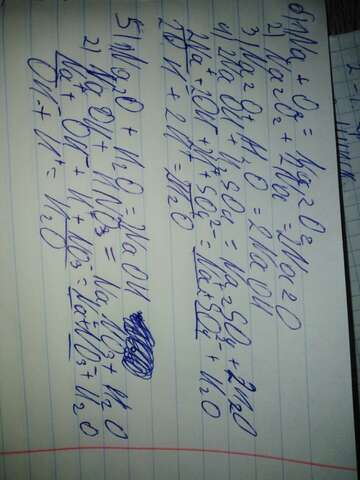 б) 1) Na + O2 = Na2O2
2) Na2O2 + 2Na = 2Na2O
3) Na2O + H2O = 2NaOH
4) 2NaOH + H2SO4 = Na2SO4 + 2H2O
2Na⁺ + 2OH⁻ + H⁺ + SO4²⁻ = Na⁺ + SO4²⁻ + H2O
2OH⁻ + 2H⁺ = 2H2O
5) 1) Na2O + H2O = 2NaOH
2) NaOH + HNO3 = NaNO3 + H2O
Na⁺ + OH⁻ + H⁺ + NO3⁻ = Na⁺ + NO3⁻ + H2O
OH⁻ + H⁺ = H2O